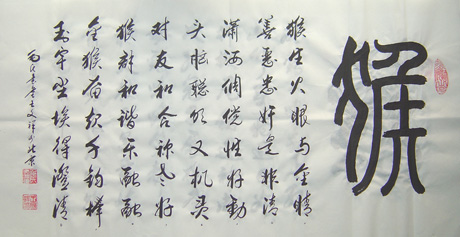 猴
猴生火眼与金睛
善恶忠奸是非清
潇洒倜傥性好动
头脑聪颖又机灵
对友和合称好
猴群和谐乐融融
金猴奋起千钧棒
玉宇尘埃得澄清
丙戌王文祥北京